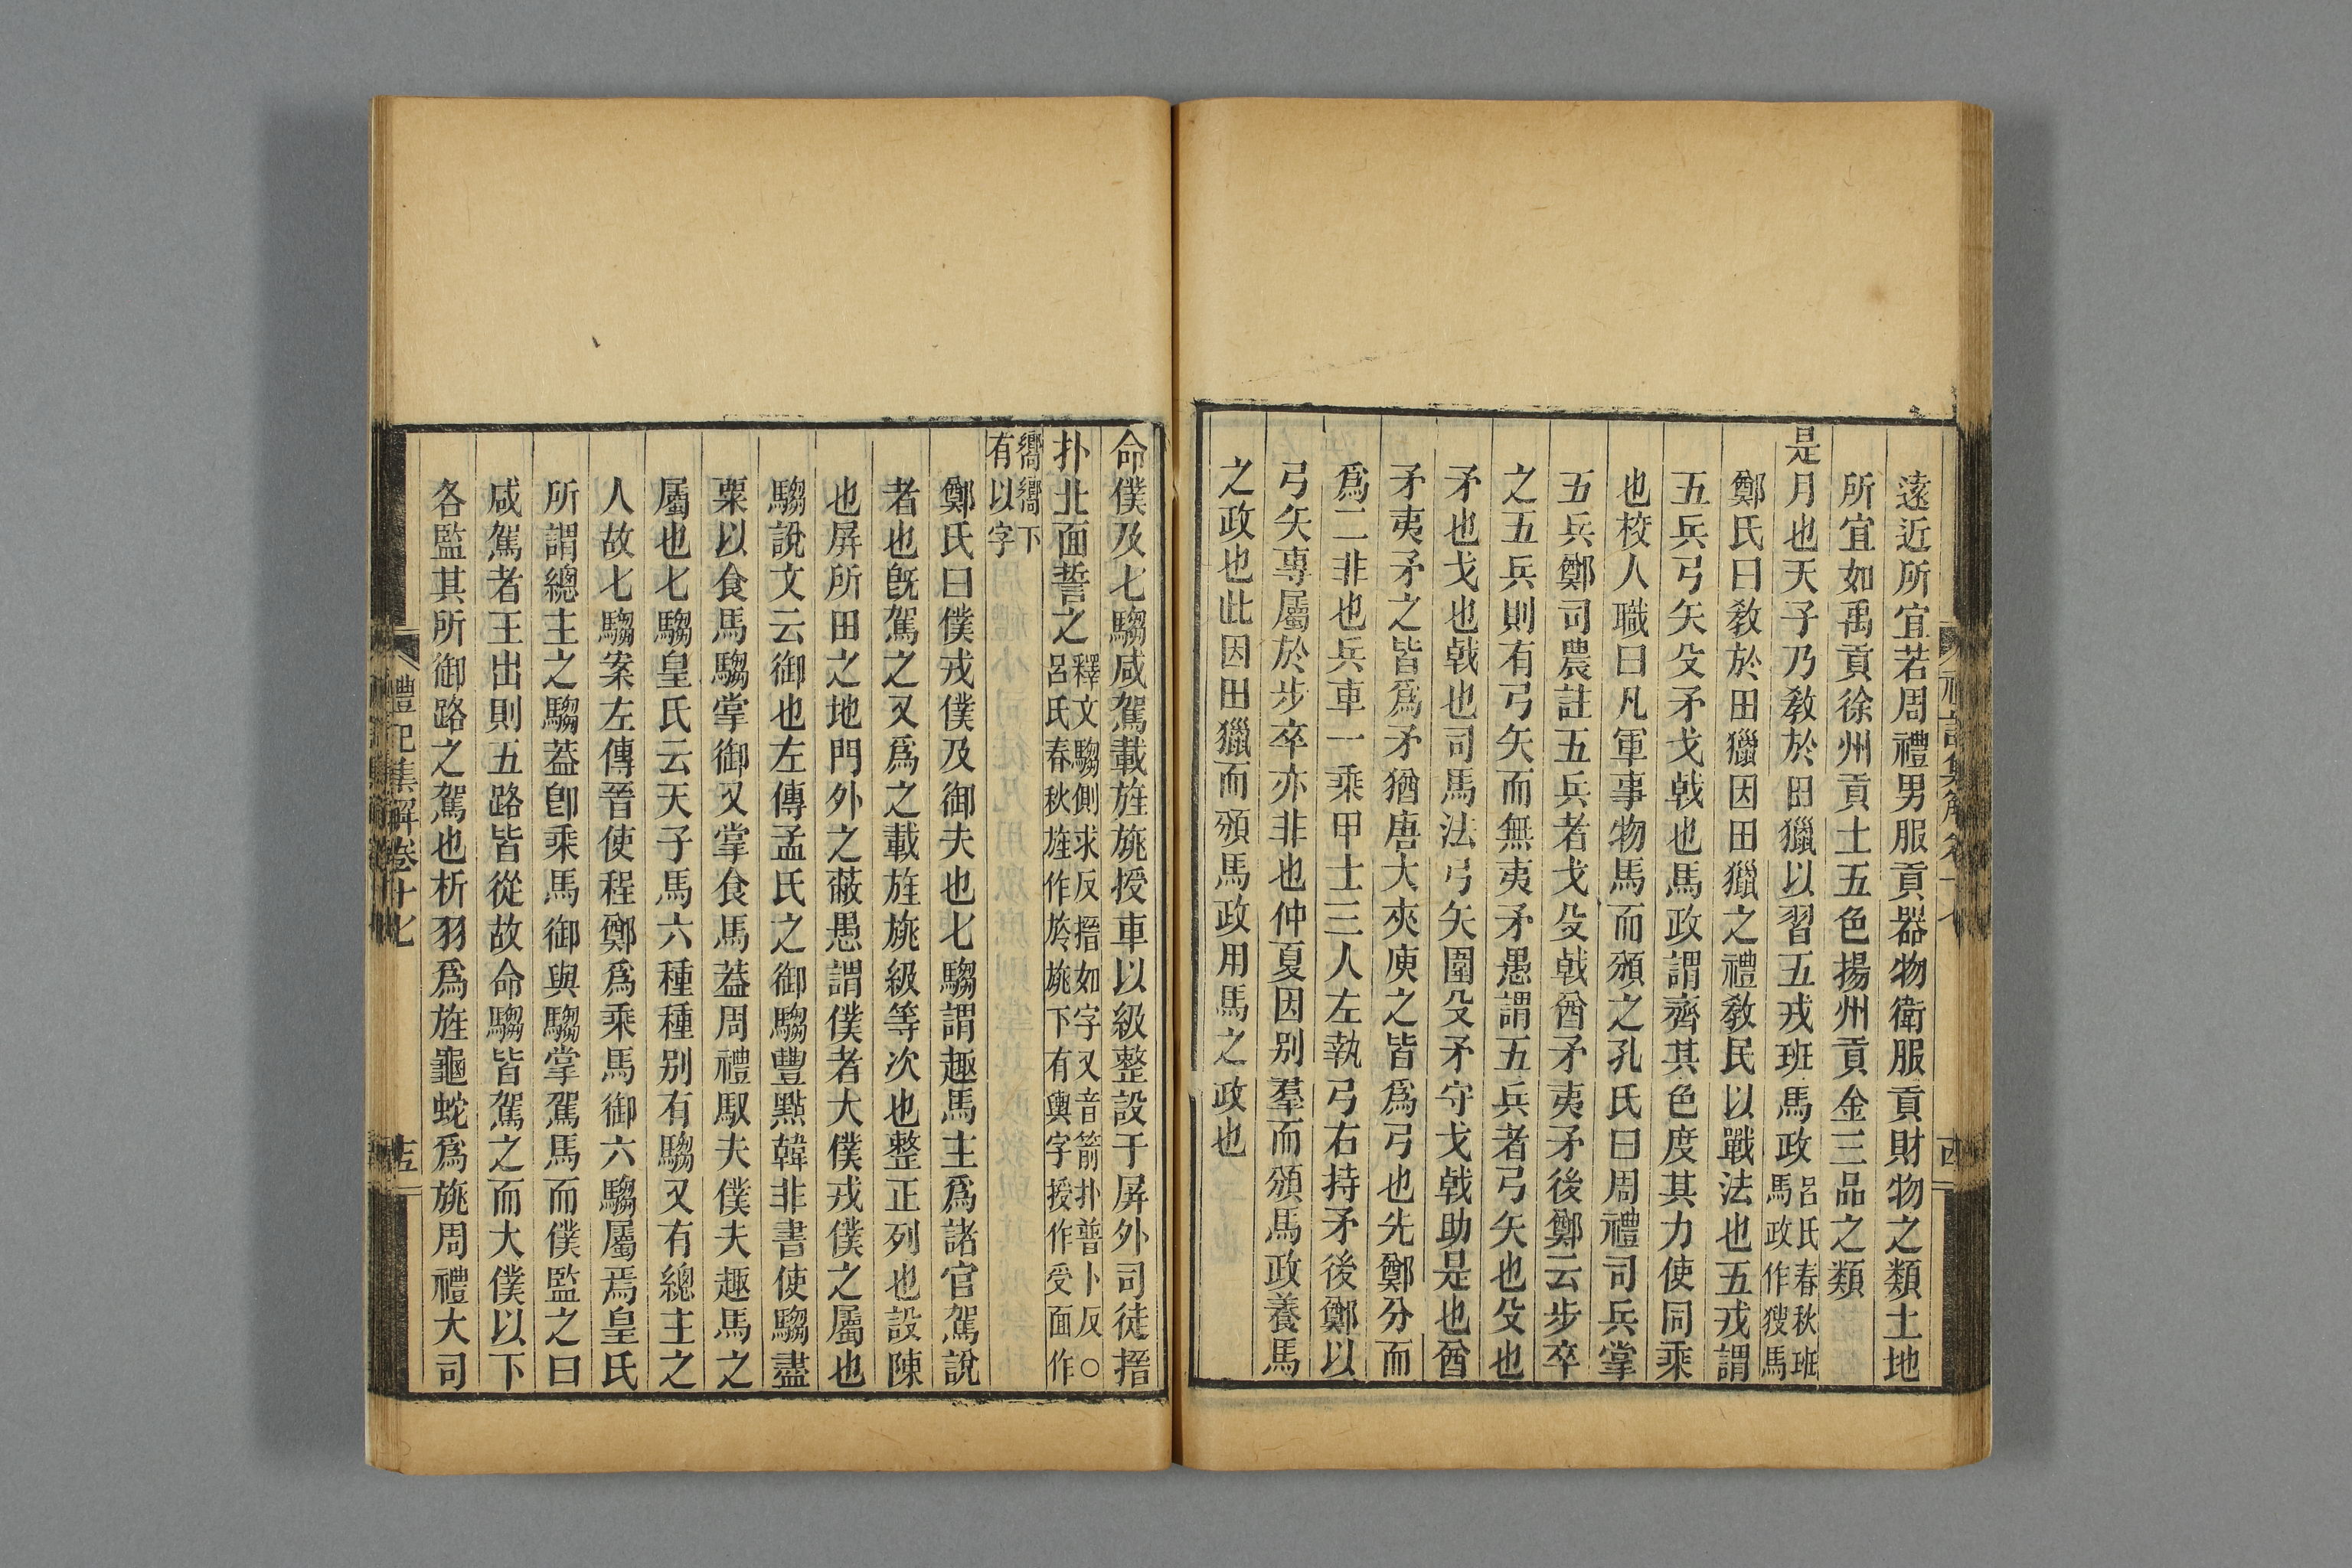 遠近所宜若周禮男服貢器物衛服貢財物之類土地
所宜如禹貢徐州貢土五色揚州貢金三品之類
是月也天子乃敎於田獵以習五戎班馬政呂氏春秋班馬政作獀馬
鄭氏曰敎於田獵因田獵之禮敎民以戰法也五戎謂
五兵弓矢殳矛戈戟也馬政謂齊其色度其力使同乘
也校人職曰凡軍事物馬而頒之孔氏曰周禮司兵掌
五兵鄭司農註五兵者戈殳戟酋矛夷矛後鄭云步卒
之五兵則有弓矢而無夷矛愚謂五兵者弓矢也殳也
矛也戈也戟也司馬法弓矢圍殳矛守戈戟助是也酋
矛夷矛之皆爲矛猶唐大夾庾之皆爲弓也先鄭分而
爲二非也兵車一乘甲士三人左執弓右持矛後鄭以
弓矢專屬於步卒亦非也仲夏因別羣而頒馬政養馬
之政也此因田獵而頒馬政用馬之政也
命僕及七騶咸駕載旌旐授車以級整設于屏外司徒搢
扑北面誓之釋文騶側求反搢如字又音箭扑普卜反○呂氏春秋旌作於旐下有輿字授作受面作
嚮嚮下有以字
鄭氏曰僕戎僕及御夫也七騶謂趣馬主爲諸官駕說
者也旣駕之又爲之載旌旐級等次也整正列也設陳
也屏所田之地門外之蔽愚謂僕者大僕戎僕之屬也
騶說文云御也左傳孟氏之御騶豐點韓非書使騶盡
粟以食馬騶掌御又掌食馬葢周禮馭夫僕夫趣馬之
屬也七騶皇氏云天子馬六種種別有騶又有總主之
人故七騶案左傳晉使程鄭爲乘馬御六騶屬焉皇氏
所謂總主之騶葢卽乘馬御與騶掌駕馬而僕監之曰
咸駕者王出則五路皆從故命騶皆駕之而大僕以下
各監其所御路之駕也析羽爲旌龜蛇爲旐周禮大司
禮記集解卷十七